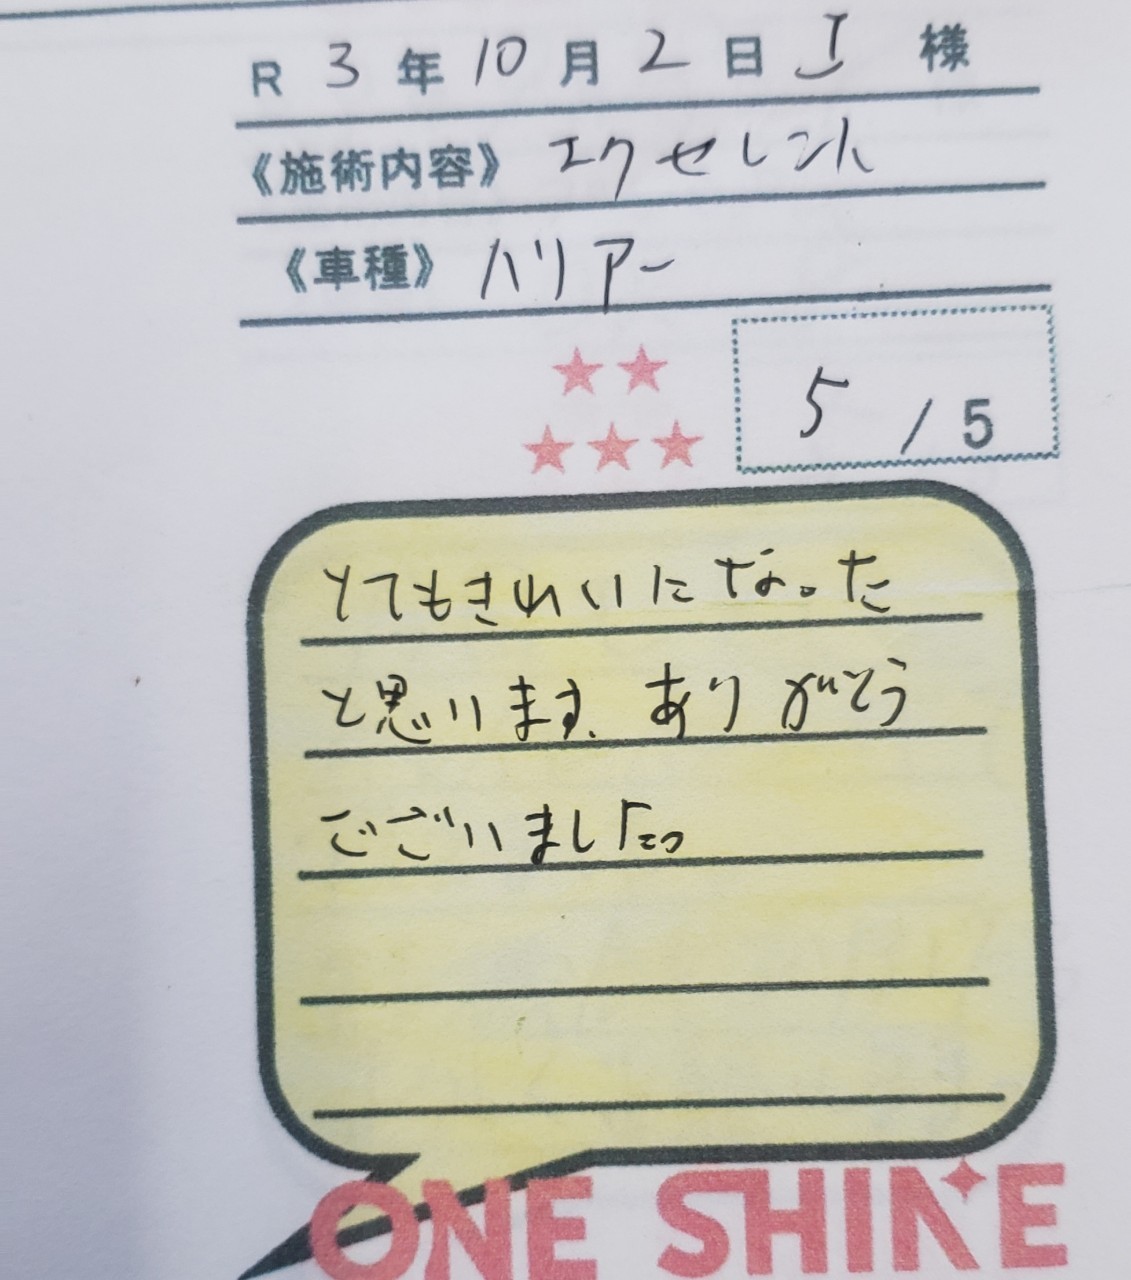 R 3 年 10 月 2 日 I 様
《施術内容》 エクセレント
《車種》 ハリアー
5 / 5
とてもきれいになった
と思います、ありがとう
ございました。
ONE SHINE